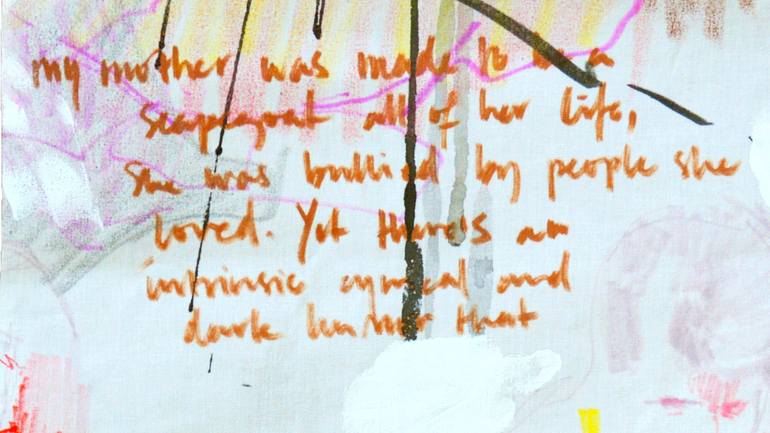 my mother was made to be a
scapegoat all of her life,
she was bullied by people she
loved. Yet there's an
intrinsic cynical and
dark humor that